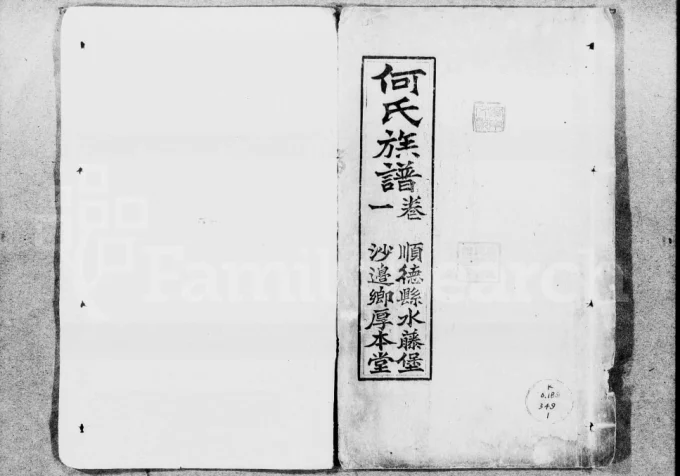 何氏族譜
卷一
順德縣水藤堡
沙邉鄉厚本堂
FamilySearch
349
1